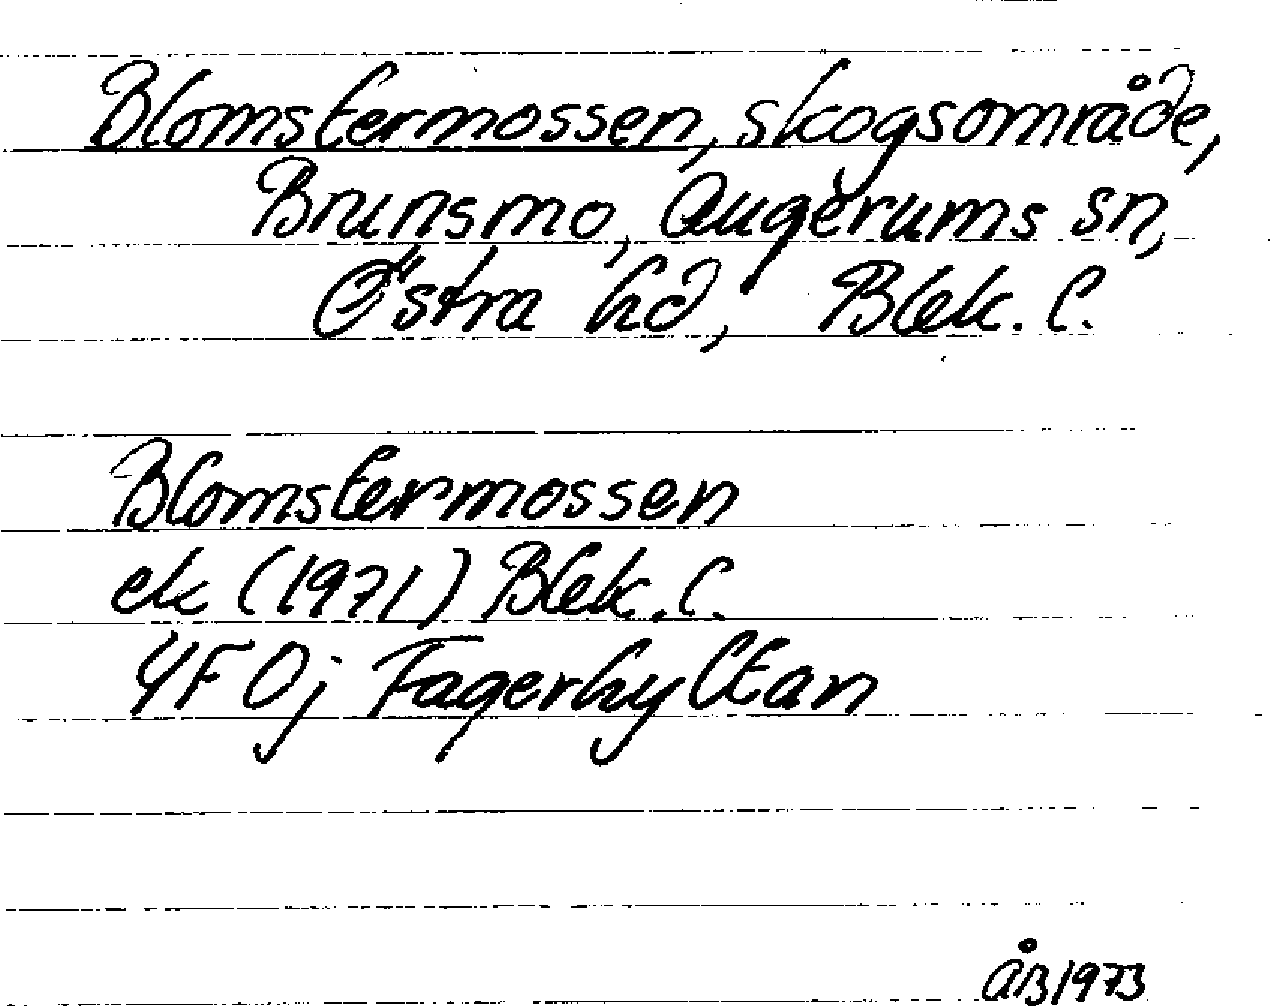 Blomstermossen, skogsområde,
Brunsmo, Augerums sn,
Östra hd, Blek. l.
Blomstermossen
ek (1971) Blek. l.
4F 0j Fagerhyltan
ÅB 1973